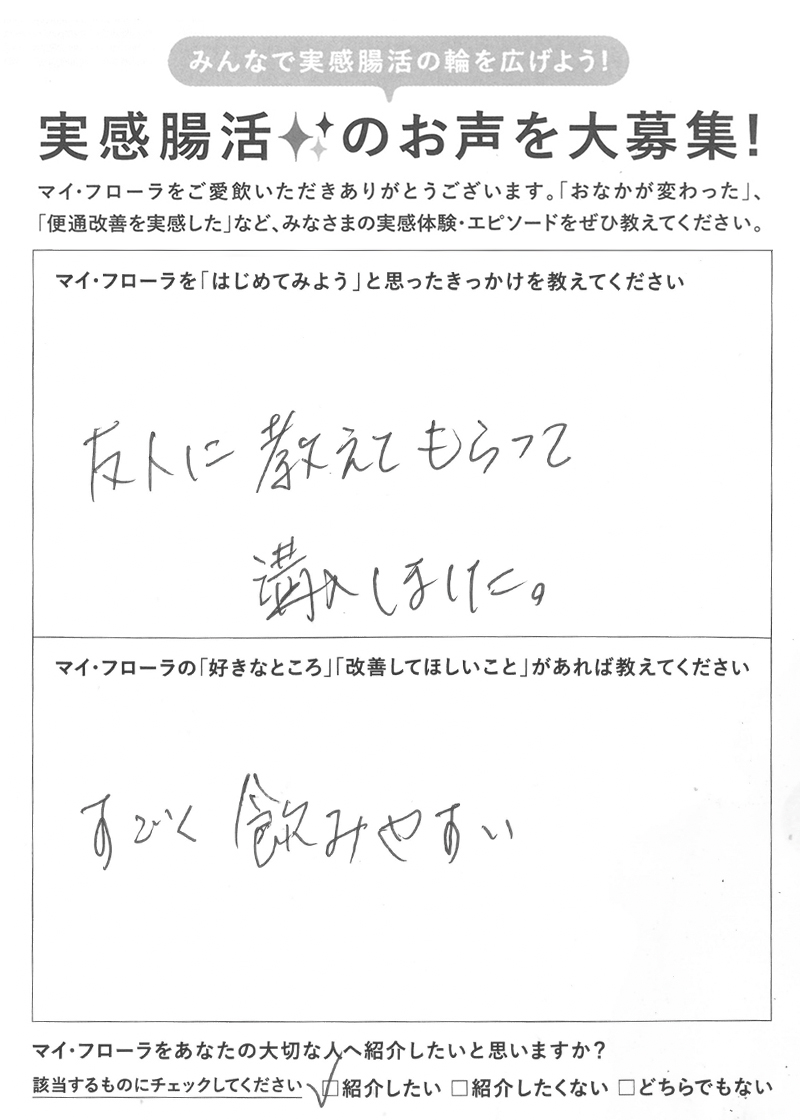 みんなで実感腸活の輪を広げよう!
実感腸活のお声を大募集!
マイ・フローラをご愛飲いただきありがとうございます。「おなかが変わった」、
「便通改善を実感した」など、みなさまの実感体験・エピソードをぜひ教えてください。
マイ・フローラを「はじめてみよう」と思ったきっかけを教えてください
友人に教えてもらって
購入しました。
マイ・フローラの「好きなところ」「改善してほしいこと」があれば教えてください
すごく飲みやすい
マイ・フローラをあなたの大切な人へ紹介したいと思いますか?
該当するものにチェックしてください ✓□紹介したい □紹介したくない □どちらでもない